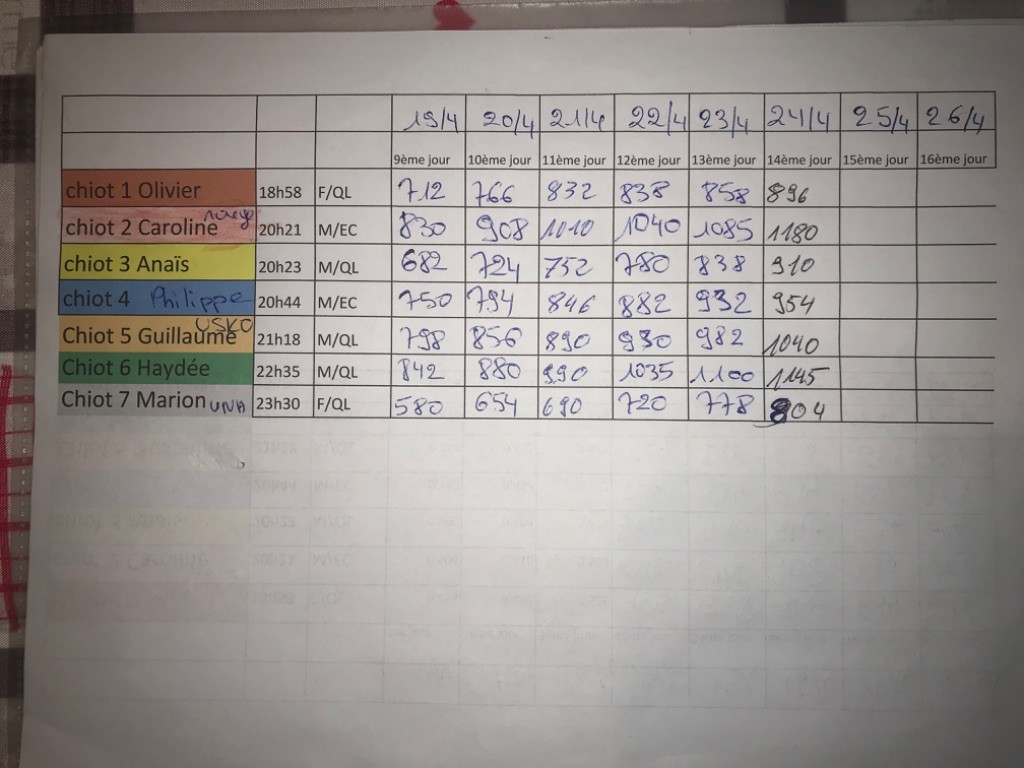 19/4 20/4 21/4 22/4 23/4 24/4 25/4 26/4
9ème jour 10ème jour 11ème jour 12ème jour 13ème jour 14ème jour 15ème jour 16ème jour
chiot 1 Olivier 18h58 F/QL 712 766 832 838 858 896
chiot 2 Caroline 20h21 M/EC 830 908 1010 1040 1085 1180
chiot 3 Anaïs 20h23 M/QL 682 724 752 780 838 910
chiot 4 Philippe 20h44 M/EC 750 794 846 882 932 954
USKO
Chiot 5 Guillaume 21h18 M/QL 798 856 890 930 982 1040
Chiot 6 Haydée 22h35 M/QL 842 880 990 1035 1100 1145
Chiot 7 Marion UNA 23h30 F/QL 580 654 690 720 778 804